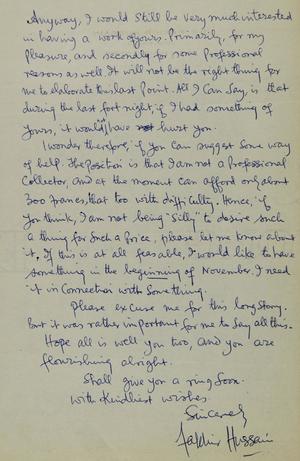 Anyway, I would still be very much interested
in having a work of yours. Primarily, for my
Pleasure, and secondly for some Professional
reasons as well. It will not be the right thing for
me to elaborate this last Point. All I can say, is that
during the last fort night, if I had something of
yours, it would have hurt you.
I wonder therefore, if you can suggest some way
of help. The Position is that I am not a Professional
Collector, and at the moment can afford only about
300 that too with difficulty. Hence, if
you think, I am not being "Silly" to desire such
a thing for such a Price, please let me know about
it. If this is at all feasable, I would like to have
something in the beginning of November. I need
it in connection with something.
Please excuse me for this long story.
But it was rather important for me to say all this.
Hope all is well you two, and you are
flourishing alright.
Shall give you a ring soon.
With kindliest wishes.
Sincerely
Hussain